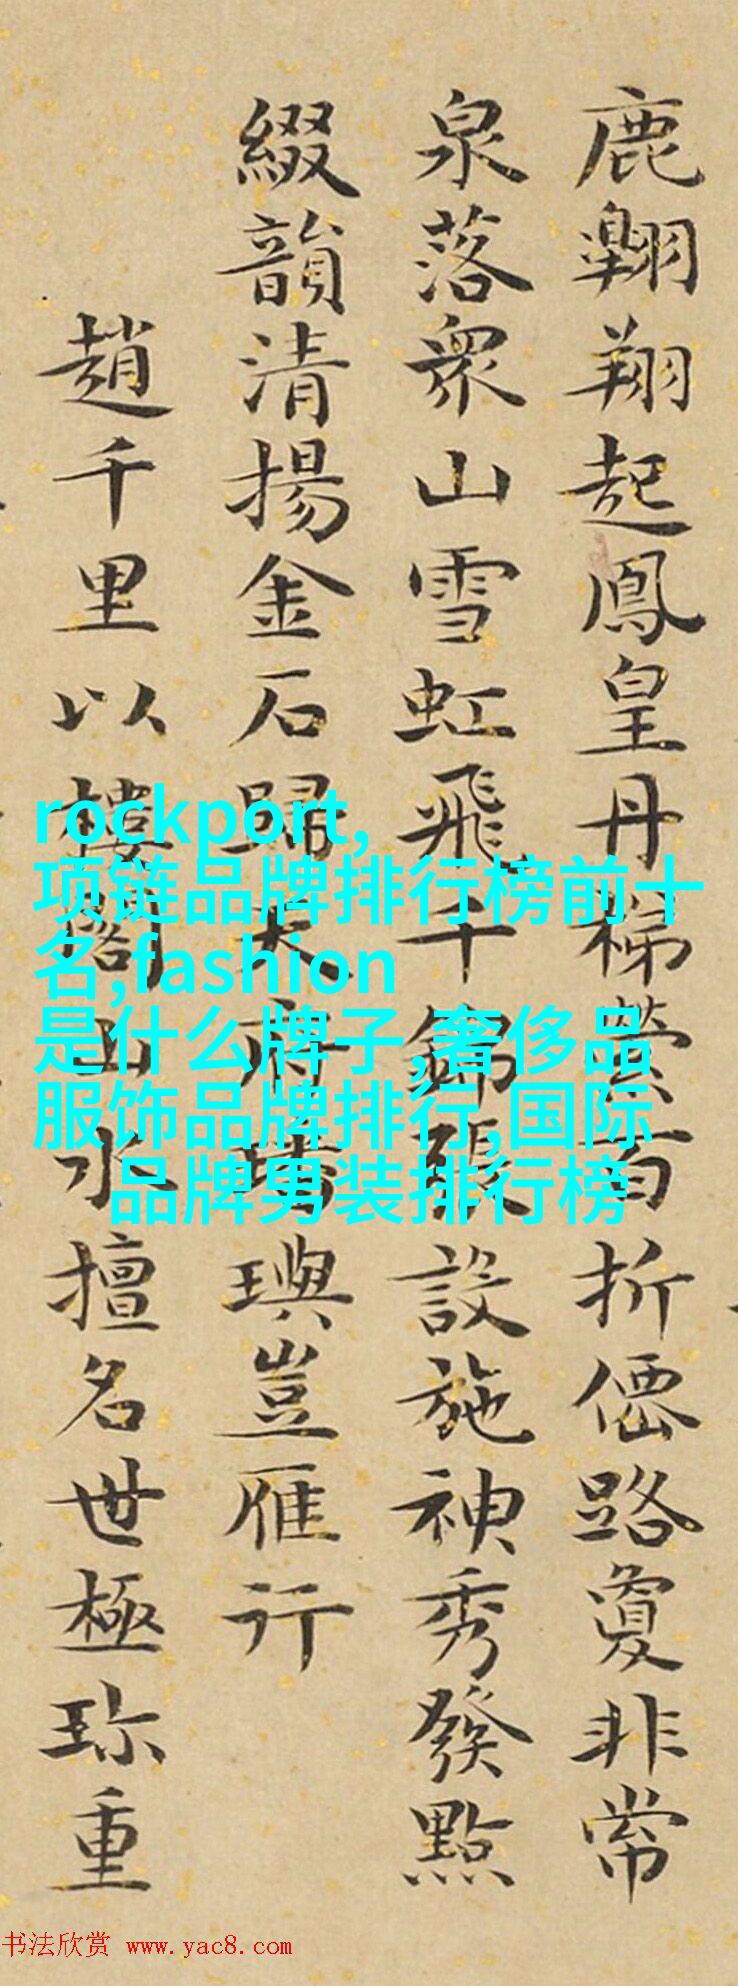 鹿翺翔起鳳皇丹梯縈百折僊路敻非常
泉落衆山雪虹飛千錦張設施神秀發點
綴韻清揚金石歸天府璠璵豈雁行
趙千里以樓閣山水擅名世極珎重
rockport,
项链品牌排行榜前十
名,fashion
是什么牌子,奢侈品
服饰品牌排行,国际
品牌男装排行榜
书法欣赏 www.yac8.com